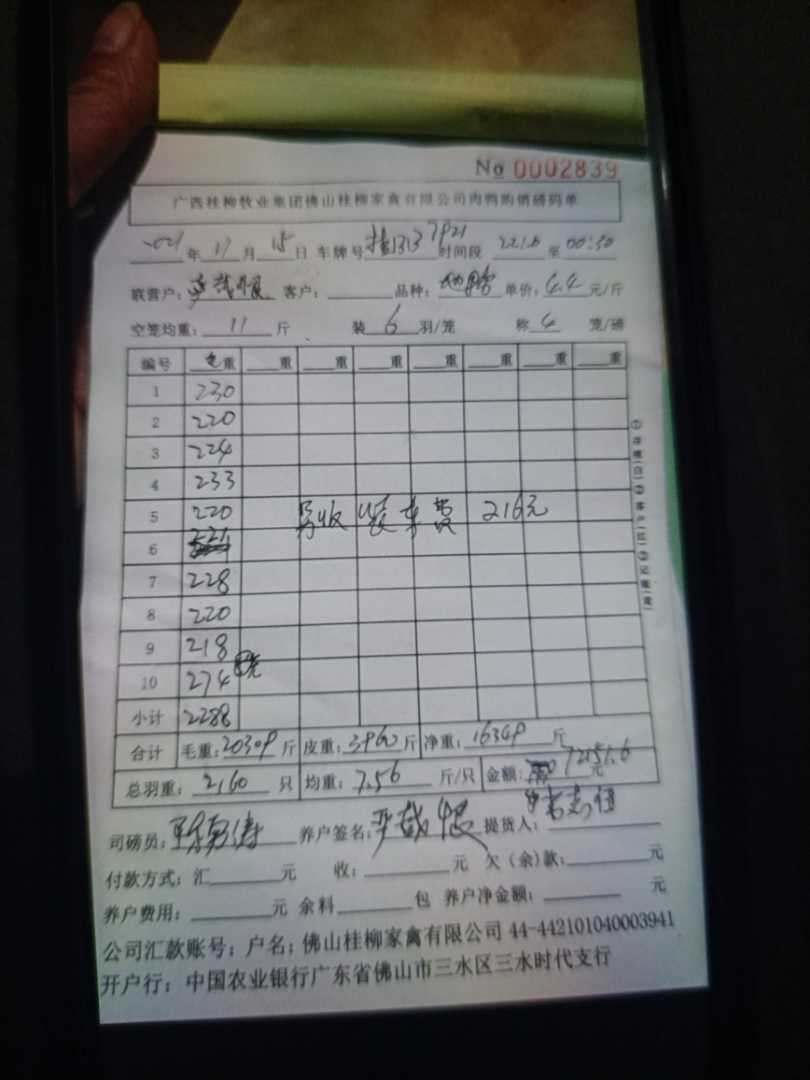 No 0002839
广西桂柳牧业集团佛山桂柳家禽有限公司肉鸭购销磅码单
年 11 月 15 日 车牌号 桂1313 7921 时间段 至 00:30
联营户: 客户: 品种: 单价: 4.4 元/斤
空笼均重: 11 斤 装 6 羽/笼 称 4 笼/磅
编号 毛重 重 重 重 重 重 重 重
1 230
2 220
3 224
4 233
5 220 另收 装车费 216元
6
7 228
8 220
9 218
10 274
小计 2288
合计 毛重: 20309 斤 皮重: 3960 斤 净重: 16349 斤
总羽重: 2160 只 均重: 7.56 斤/只 金额: 元
司磅员: 养户签名: 提货人:
付款方式: 汇 元 收: 元 欠(余)款: 元
养户费用: 元 余料 包 养户净金额: 元
公司汇款账号: 户名: 佛山桂柳家禽有限公司 44-442101040003941
开户行: 中国农业银行广东省佛山市三水区三水时代支行